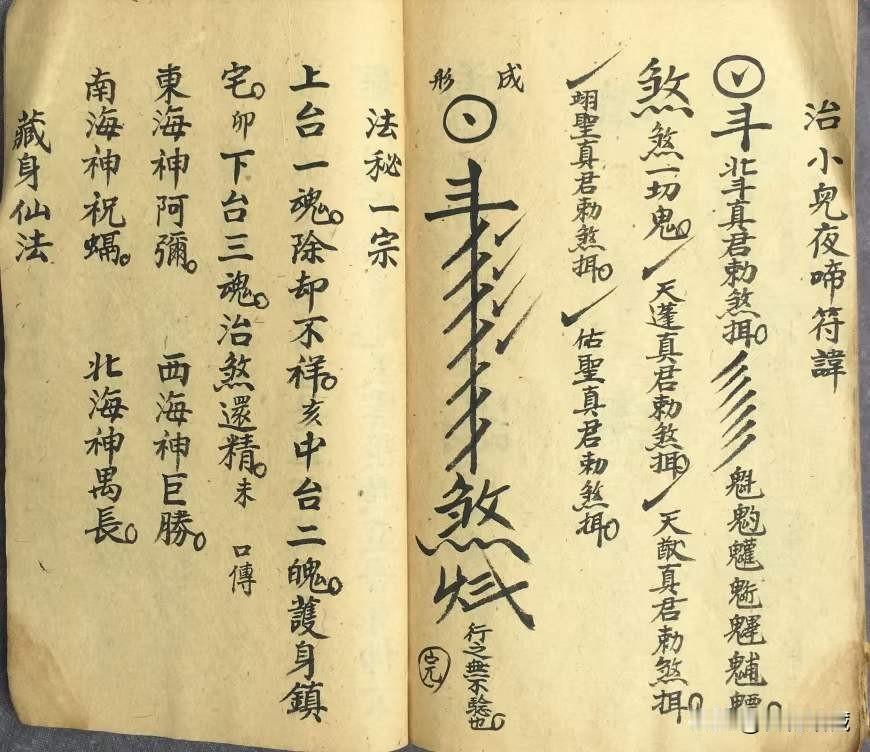 治小兒夜啼符諱
斗 北斗真君勅煞揖。 魁魡
煞 煞一切鬼。 天蓬真君勅煞揖。 天猷真君勅煞揖。
翊聖真君勅煞揖。 佑聖真君勅煞揖。
成形
斗 煞
行之無不驗也。
法秘一宗
上台一魂。除却不祥。亥中台二魄。護身鎮
宅。卯下台三魂。治煞還精。未 口傳
東海神阿彌。 西海神巨勝。
南海神祝螎。 北海神禺長。
藏身仙法
藏